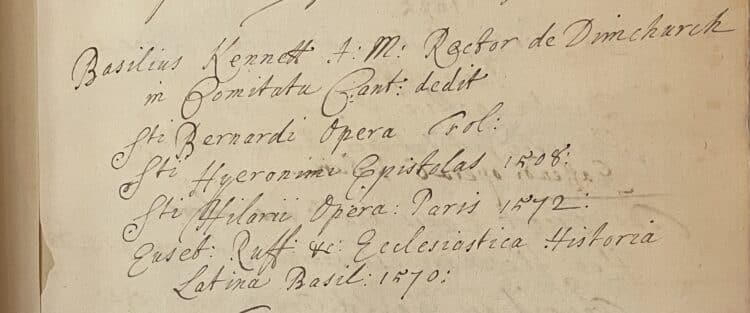 Basilius Kennett A: M: Rector de Dimchurch
in Comitatu Cant: dedit
Sti Bernardi Opera Fol:
Sti Hyeronimi Epistolas 1508:
Sti Hilarii Opera: Paris 1572:
Euseb: Ruff: &c: Ecclesiastica Historia
Latina Basil: 1570: